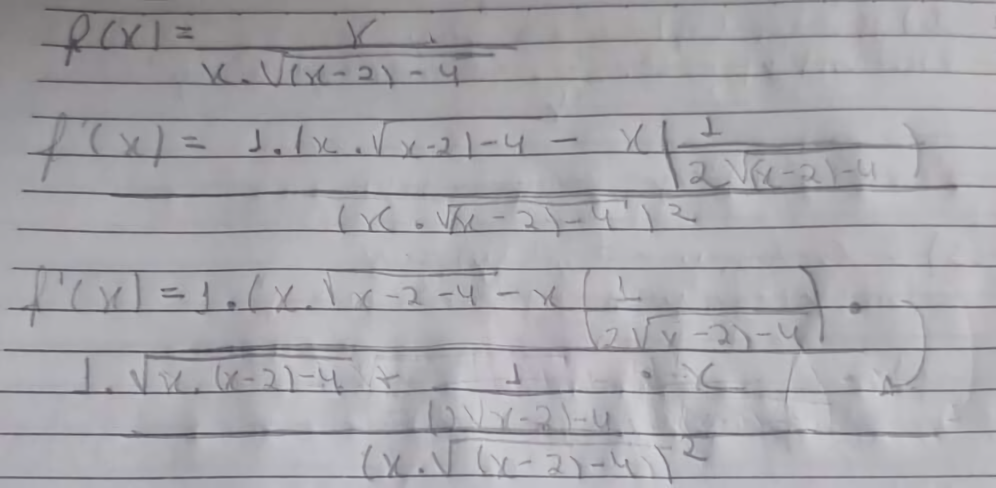 f(x) = x / x.√(x-2)-4
f'(x) = 1.(x.√(x-2)-4 - x(1 / 2√(x-2)-4) / (x.√(x-2)-4)²
f'(x) = 1.(x.√x-2-4 - x(1 / 2√x-2)-4) .
1.√x.(x-2)-4 + 1 / (2√x-2)-4 . x / (x.√(x-2)-4)²